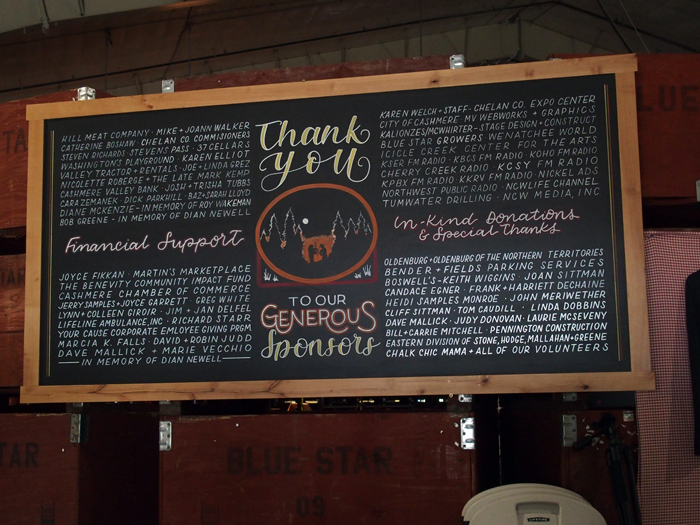 HILL MEAT COMPANY · MIKE + JOANN WALKER
CATHERINE BOSHAW · CHELAN CO. COMMISIONERS
STEVEN RICHARDS · STEVENS PASS · 37 CELLARS
WASHINGTON'S PLAYGROUND · KAREN ELLIOT
VALLEY TRACTOR + RENTALS · JOE + LINDA GREZ
NICOLETTE ROBERGE + THE LATE MARK KEMP
CASHMERE VALLEY BANK · JOSH + TRISHA TUBBS
CARA ZEMANEK · DICK PARKHILL · BAZ + SARAH LLOYD
DIANE MCKENZIE - IN MEMORY OF ROY WAKEMAN
BOB GREENE - IN MEMORY OF DIAN NEWELL
Financial Support
JOYCE FIKKAN · MARTIN'S MARKETPLACE
THE BENEVITY COMMUNITY IMPACT FUND
CASHMERE CHAMBER OF COMMERCE
JERRY SAMPLES + JOYCE GARRETT · GREG WHITE
LYNN + COLLEEN GIROIR · JIM + JAN DELFEL
LIFELINE AMBULANCE, INC · RICHARD STARR
YOUR CAUSE CORPORATE EMLOYEE GIVING PRGM
MARCIA K. FALLS · DAVID + ROBIN JUDD
DAVE MALLICK + MARIE VECCHIO
IN MEMORY OF DIAN NEWELL
Thank
you
TO OUR
GENEROUS
Sponsors
KAREN WELCH + STAFF - CHELAN CO. EXPO CENTER
CITY OF CASHMERE · MV WEBWORKS + GRAPHICS
KALIONZES/MCWHIRTER - STAGE DESIGN + CONSTRUCT
BLUE STAR GROWERS · WENATCHEE WORLD
ICICLE CREEK CENTER FOR THE ARTS
KOZI FM RADIO · KBCS FM RADIO · KOHO FM RADIO
CHERRY CREEK RADIO · KCSY FM RADIO
KPBX FM RADIO · KKRV FM RADIO · NICKEL ADS
NORTHWEST PUBLIC RADIO · NCWLIFE CHANNEL
TUMWATER DRILLING · NCW MEDIA, INC
In-Kind Donations
& Special Thanks
OLDENBURG + OLDENBURG OF THE NORTHERN TERRITORIES
BENDER + FIELDS PARKING SERVICES
BOSWELL'S - KEITH WIGGINS · JOAN SITTMAN
CANDACE EGNER · FRANK + HARRIETT DECHAINE
HEIDI SAMPLES MONROE · JOHN MERIWETHER
CLIFF SITTMAN · TOM CAUDILL · LINDA DOBBINS
DAVE MALLICK · JUDY DONOVAN · LAURIE MCSEVENY
BILL + CARRIE MITCHELL · PENNINGTON CONSTRUCTION
EASTERN DIVISION OF STONE, HODGE, MALLAHAN + GREENE
CHALK CHIC MAMA + ALL OF OUR VOLUNTEERS
BLUE STAR
09
TAR
LUE
LIFETIME